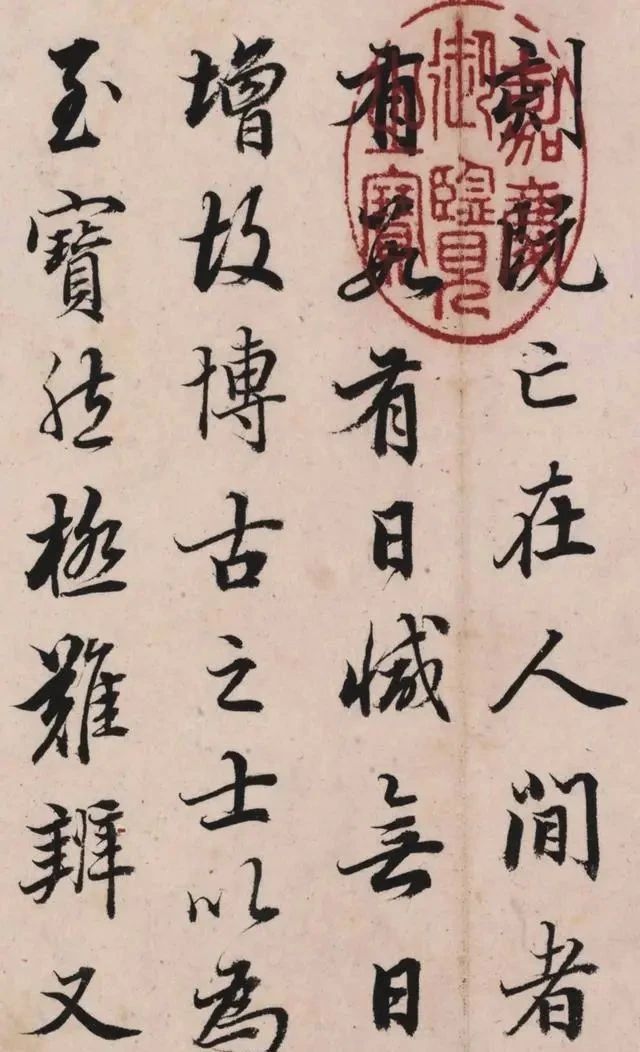 刻既亡在人間者
有數有日減無日
增故博古之士以為
至寶然極難辨又
嘉慶
御覽
之寶